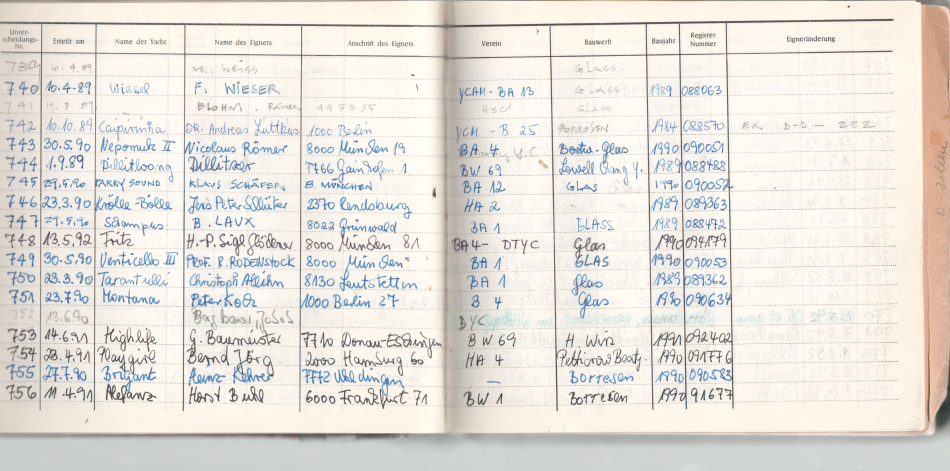 Unter-scheidungs-Nr. Erteilt am Name der Yacht Name des Eigners Anschrift des Eigners Verein Bauwerft Baujahr Register Nummer Eigneränderung
739 10.4.89 DR. WEISS GLASS
740 10.4.89 Wiesel F. WIESER YCAM - BA 13 GLASS 1989 088063
741 BLOHM. RAINER 445355 HSC GLASS
742 10.10.89 Caipirinha DR. Andreas Luttkus 1000 Berlin YCM - B 25 BORRESEN 1984 088570 EX D-D-
743 30.5.90 Nepomuk II Nicolaus Römer 8000 Münden 19 BA 4 Glas 1990 090051
744 1.9.89 Dillitloong Dillitzer 7766 Gaindofen 1 BW 69 Lowell Y. 1989 088488
745 29.5.90 PARRY SOUND KLAUS SCHÄFER 8 MÜNCHEN BA 12 GLAS 1990 090052
746 23.3.90 Krölle-Bölle Jens Peter Schlüter 2370 Rendsburg HA 2 " " 1989 089363
747 29.5.90 Schampus B. LAUX 8022 Grünwald BA 1 GLASS 1989 088472
748 13.5.92 Fritz H.-P. Sigl 8000 Münden 81 BA 4 - DTYC Glas 1990 094179
749 30.5.90 Venticello III PROF. R. RODENSTOCK 8000 Münden BA 1 GLAS 1990 090053
750 23.3.90 Tarantulli Christoph 8130 Leutstetten BA 1 Glas 1989 089362
751 23.7.90 Montana Peter 1000 Berlin 27 B 4 Glas 1990 090634
752 13.6.90 BYC
753 14.6.91 Highlife G. Baumeister 7710 Donau-Esdingen BW 69 H. Wirz 1991 092402
754 23.4.91 Playgirl Bernd Jörg 2000 Hamburg 60 HA 4 1990 091776
755 27.7.90 Briljant Heinz Kehrer 7772 Uhldingen — Borresen 1990 090583
756 11.4.91 Alefanz Horst Buhl 6000 Frankfurt 71 BW 1 Borresen 1990 91677